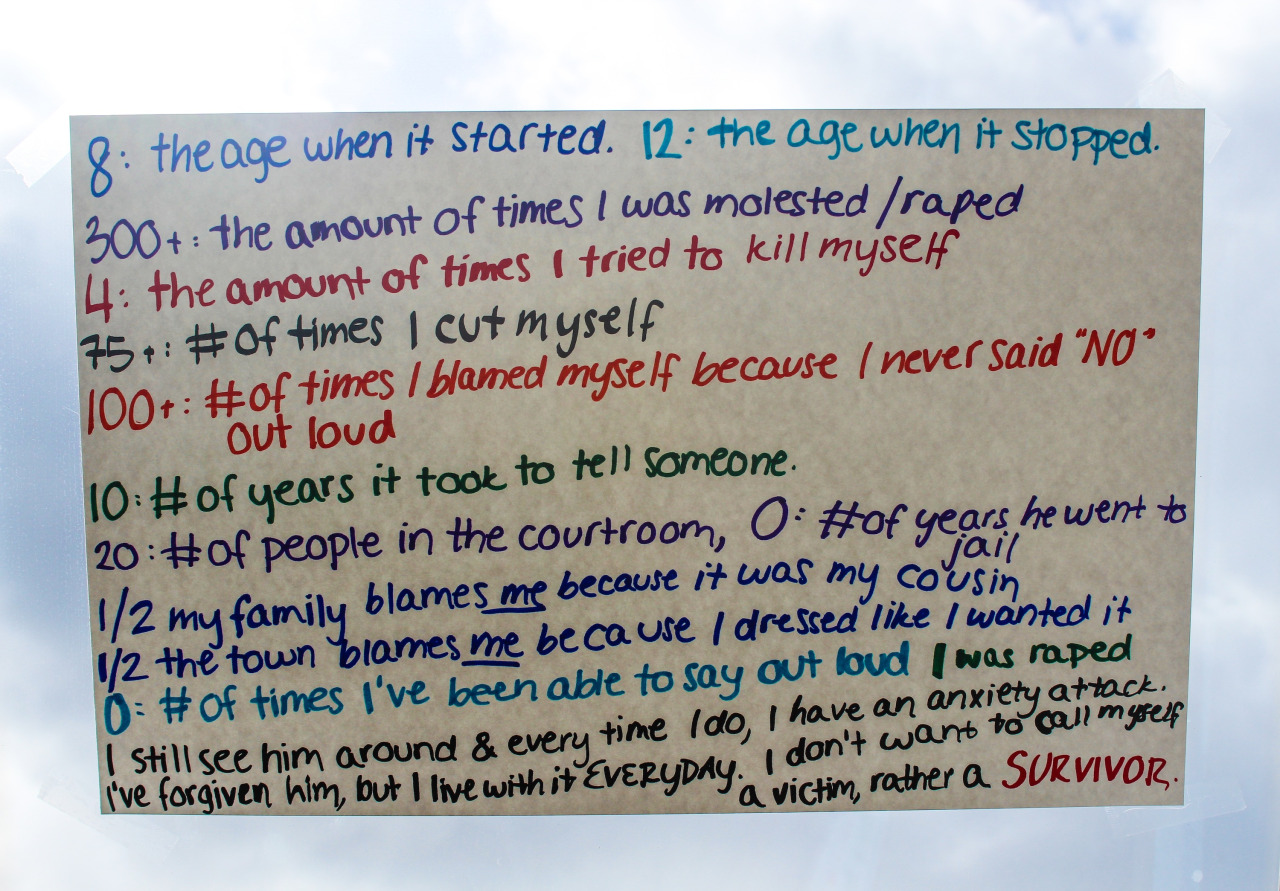 8: the age when it started. 12: the age when it stopped.
300+: the amount of times I was molested/raped
4: the amount of times I tried to kill myself
75+: # of times I cut myself
100+: # of times I blamed myself because I never said "NO"
out loud
10: # of years it took to tell someone.
20: # of people in the courtroom, 0: # of years he went to
jail
1/2 my family blames me because it was my cousin
1/2 the town blames me because I dressed like I wanted it
0: # of times I've been able to say out loud I was raped
I still see him around & every time I do, I have an anxiety attack.
I've forgiven him, but I live with it EVERYDAY. I don't want to call myself
a victim, rather a SURVIVOR.